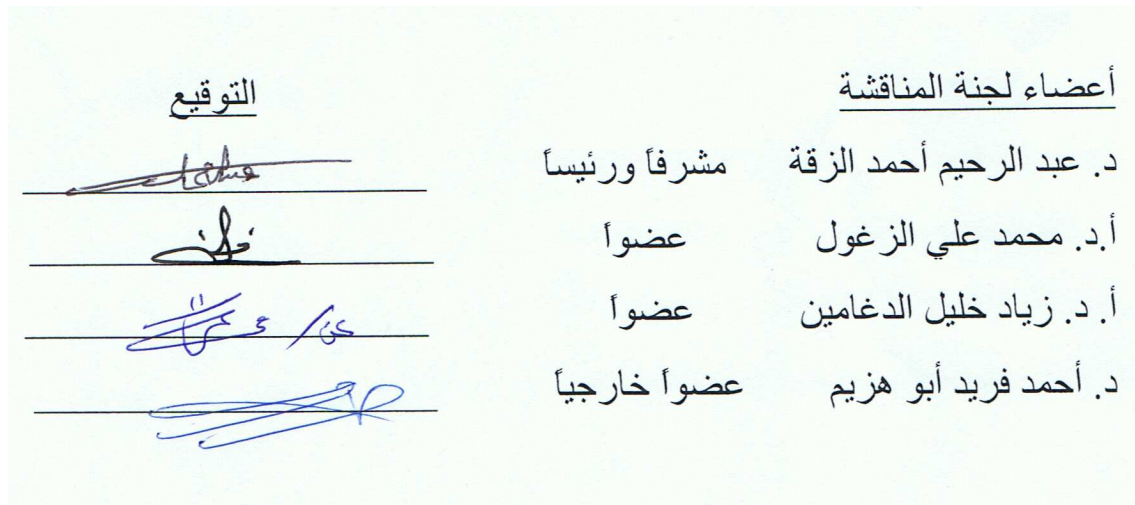 أعضاء لجنة المناقشة التوقيع
د. عبد الرحيم أحمد الزقة مشرفاً ورئيساً
أ.د. محمد علي الزغول عضواً
أ. د. زياد خليل الدغامين عضواً
د. أحمد فريد أبو هزيم عضواً خارجياً